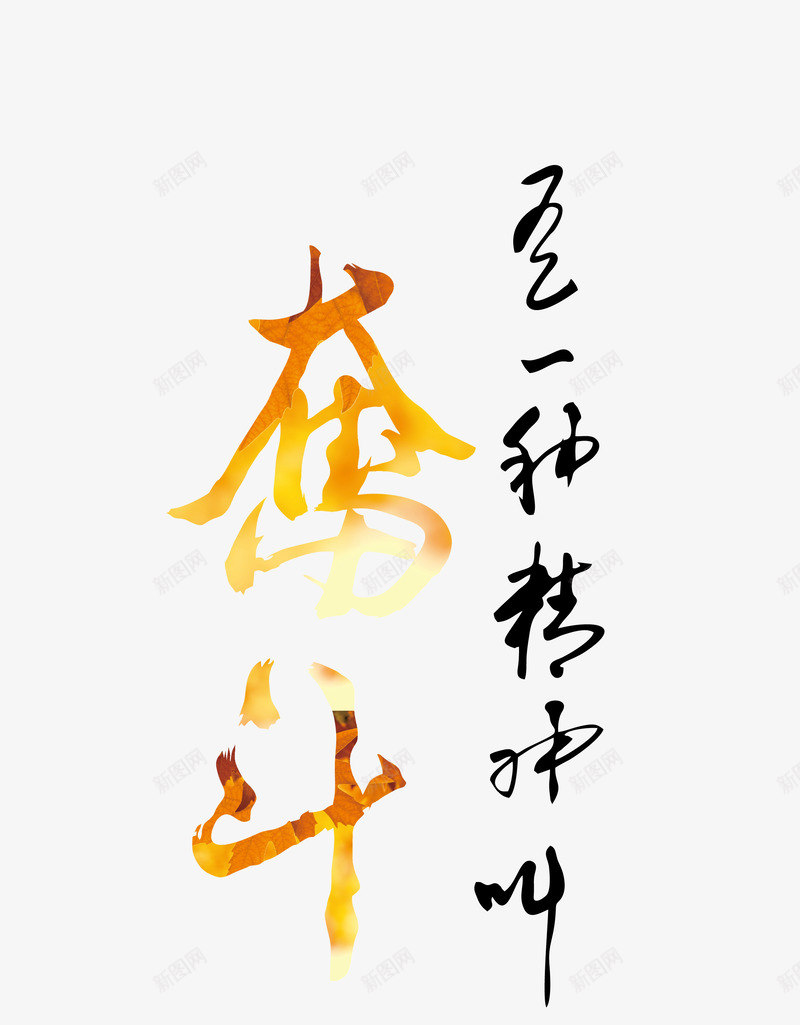 一种精神叫
奮斗
新图网